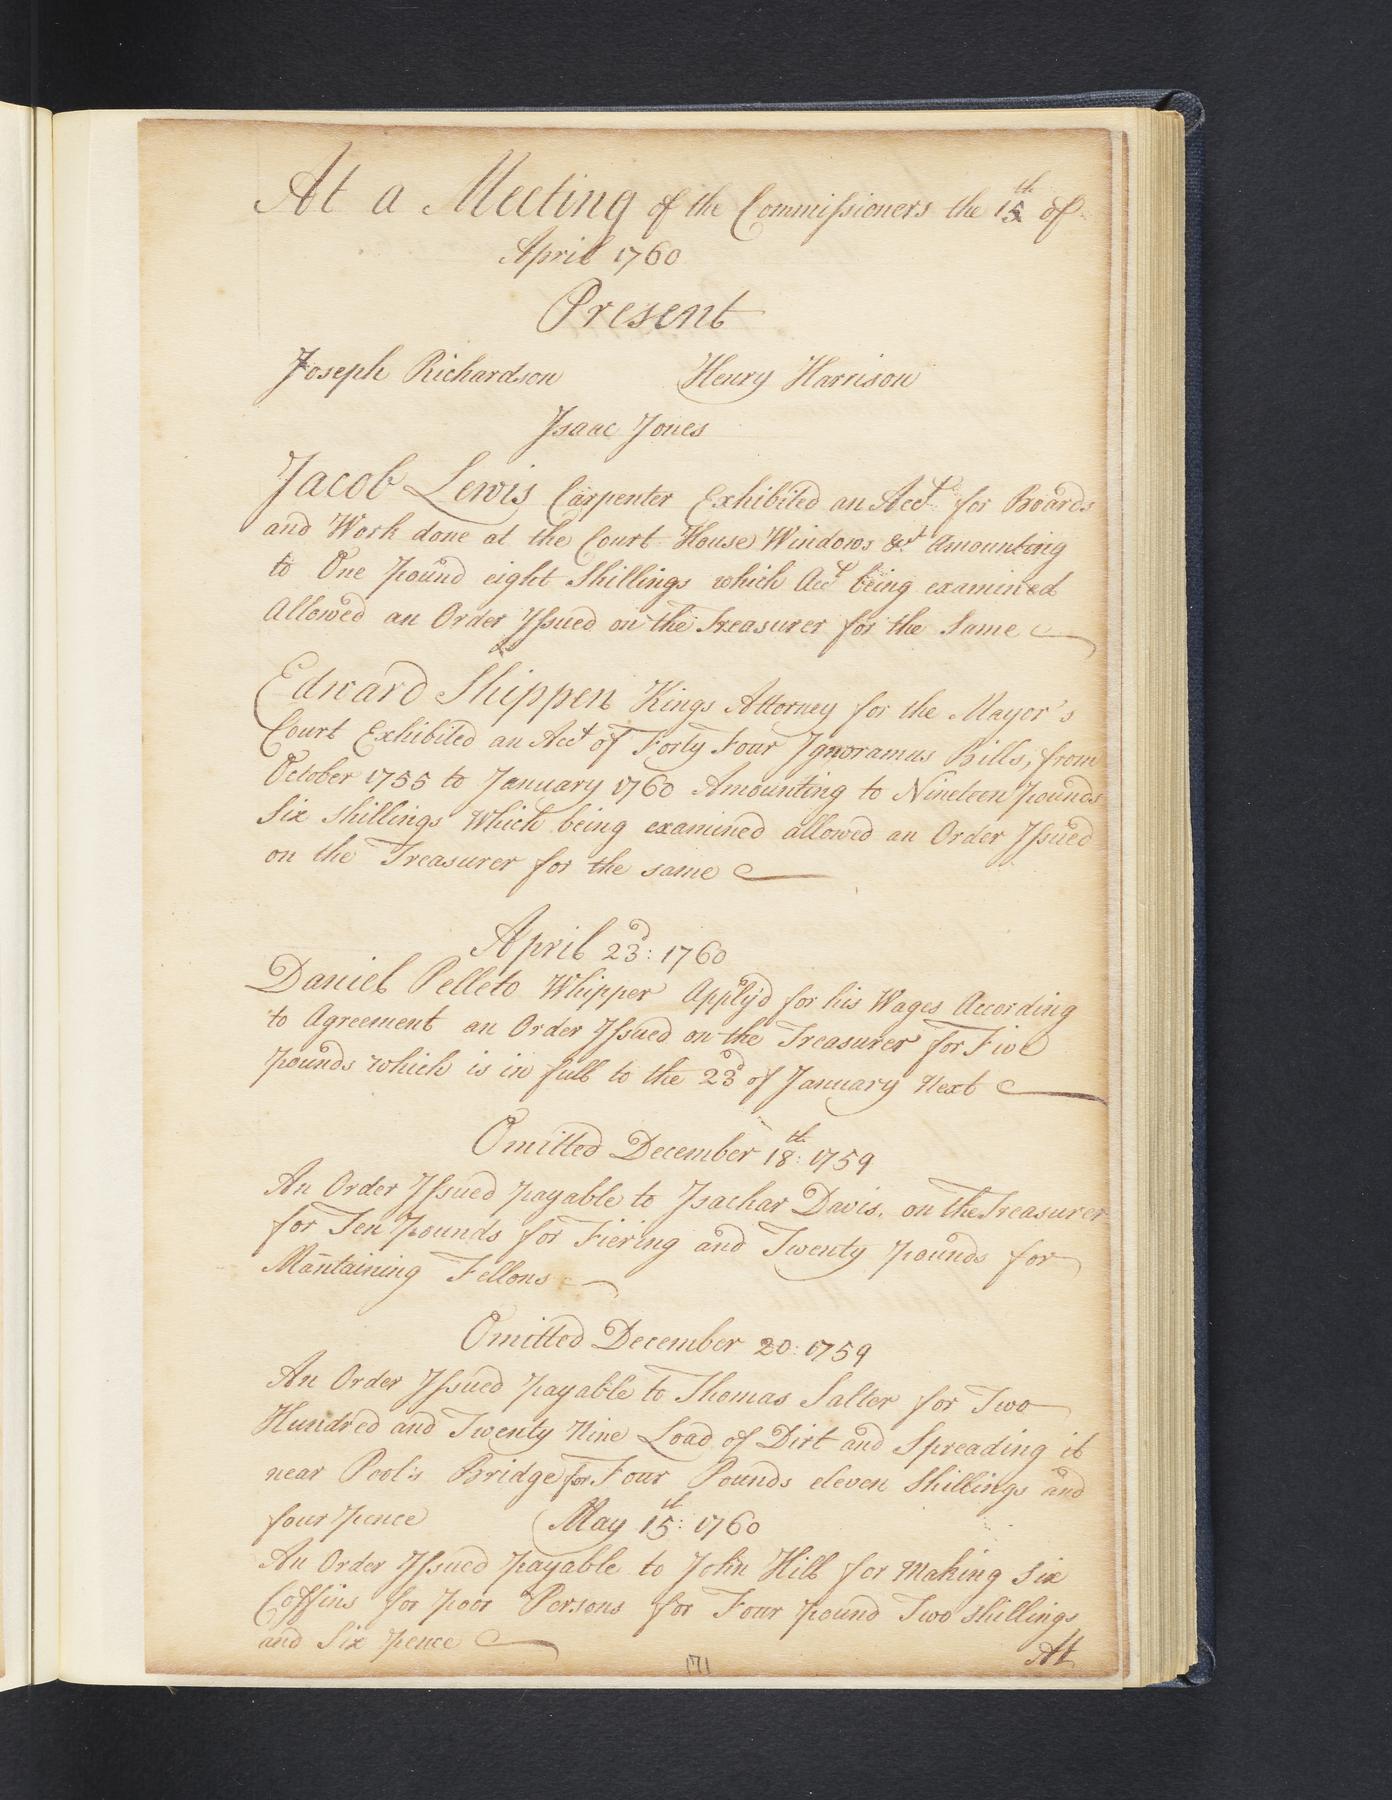 At a Meeting of the Commissioners the 15th of
April 1760
Present
Joseph Richardson Henry Harrison
Isaac Jones
Jacob Lewis Carpenter Exhibited an Acct for Boards
and Work done at the Court House Windows &ct Amounting
to One pound eight Shillings which Acct being examined
Allowed an Order Issued on the Treasurer for the Same
Edward Shippen Kings Attorney for the Mayor's
Court Exhibited an Acct of Forty Four Ignoramus Bills, from
October 1755 to January 1760 Amounting to Nineteen pounds
Six Shillings Which being examined allowed an Order Issued
on the Treasurer for the same
April 23d: 1760
Daniel Pelleto Whipper Apply'd for his Wages According
to Agreement an Order Issued on the Treasurer for Five
pounds which is in full to the 23d of January Next
Omitted December 18th: 1759
An Order Issued payable to Isachar Davis. on the Treasurer
for Ten pounds for Fiering and Twenty pounds for
Mantaining Fellons
Omitted December 20: 1759
An Order Issued payable to Thomas Salter for Two
Hundred and Twenty Nine Load of Dirt and Spreading it
near Pool's Bridge for Four Pounds eleven Shillings and
four pence May 15th: 1760
An Order Issued payable to John Hill for Making Six
Coffins for poor Persons for Four pound Two shillings
and Six pence
At
171